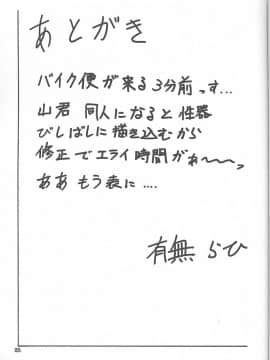 あとがき
バイク便が来る3分前っす…
山君 同人になると性器
びしばしに描き込むから
修正でエライ時間がぁ〜〜っ
ああもう表に‥‥
有無らひ